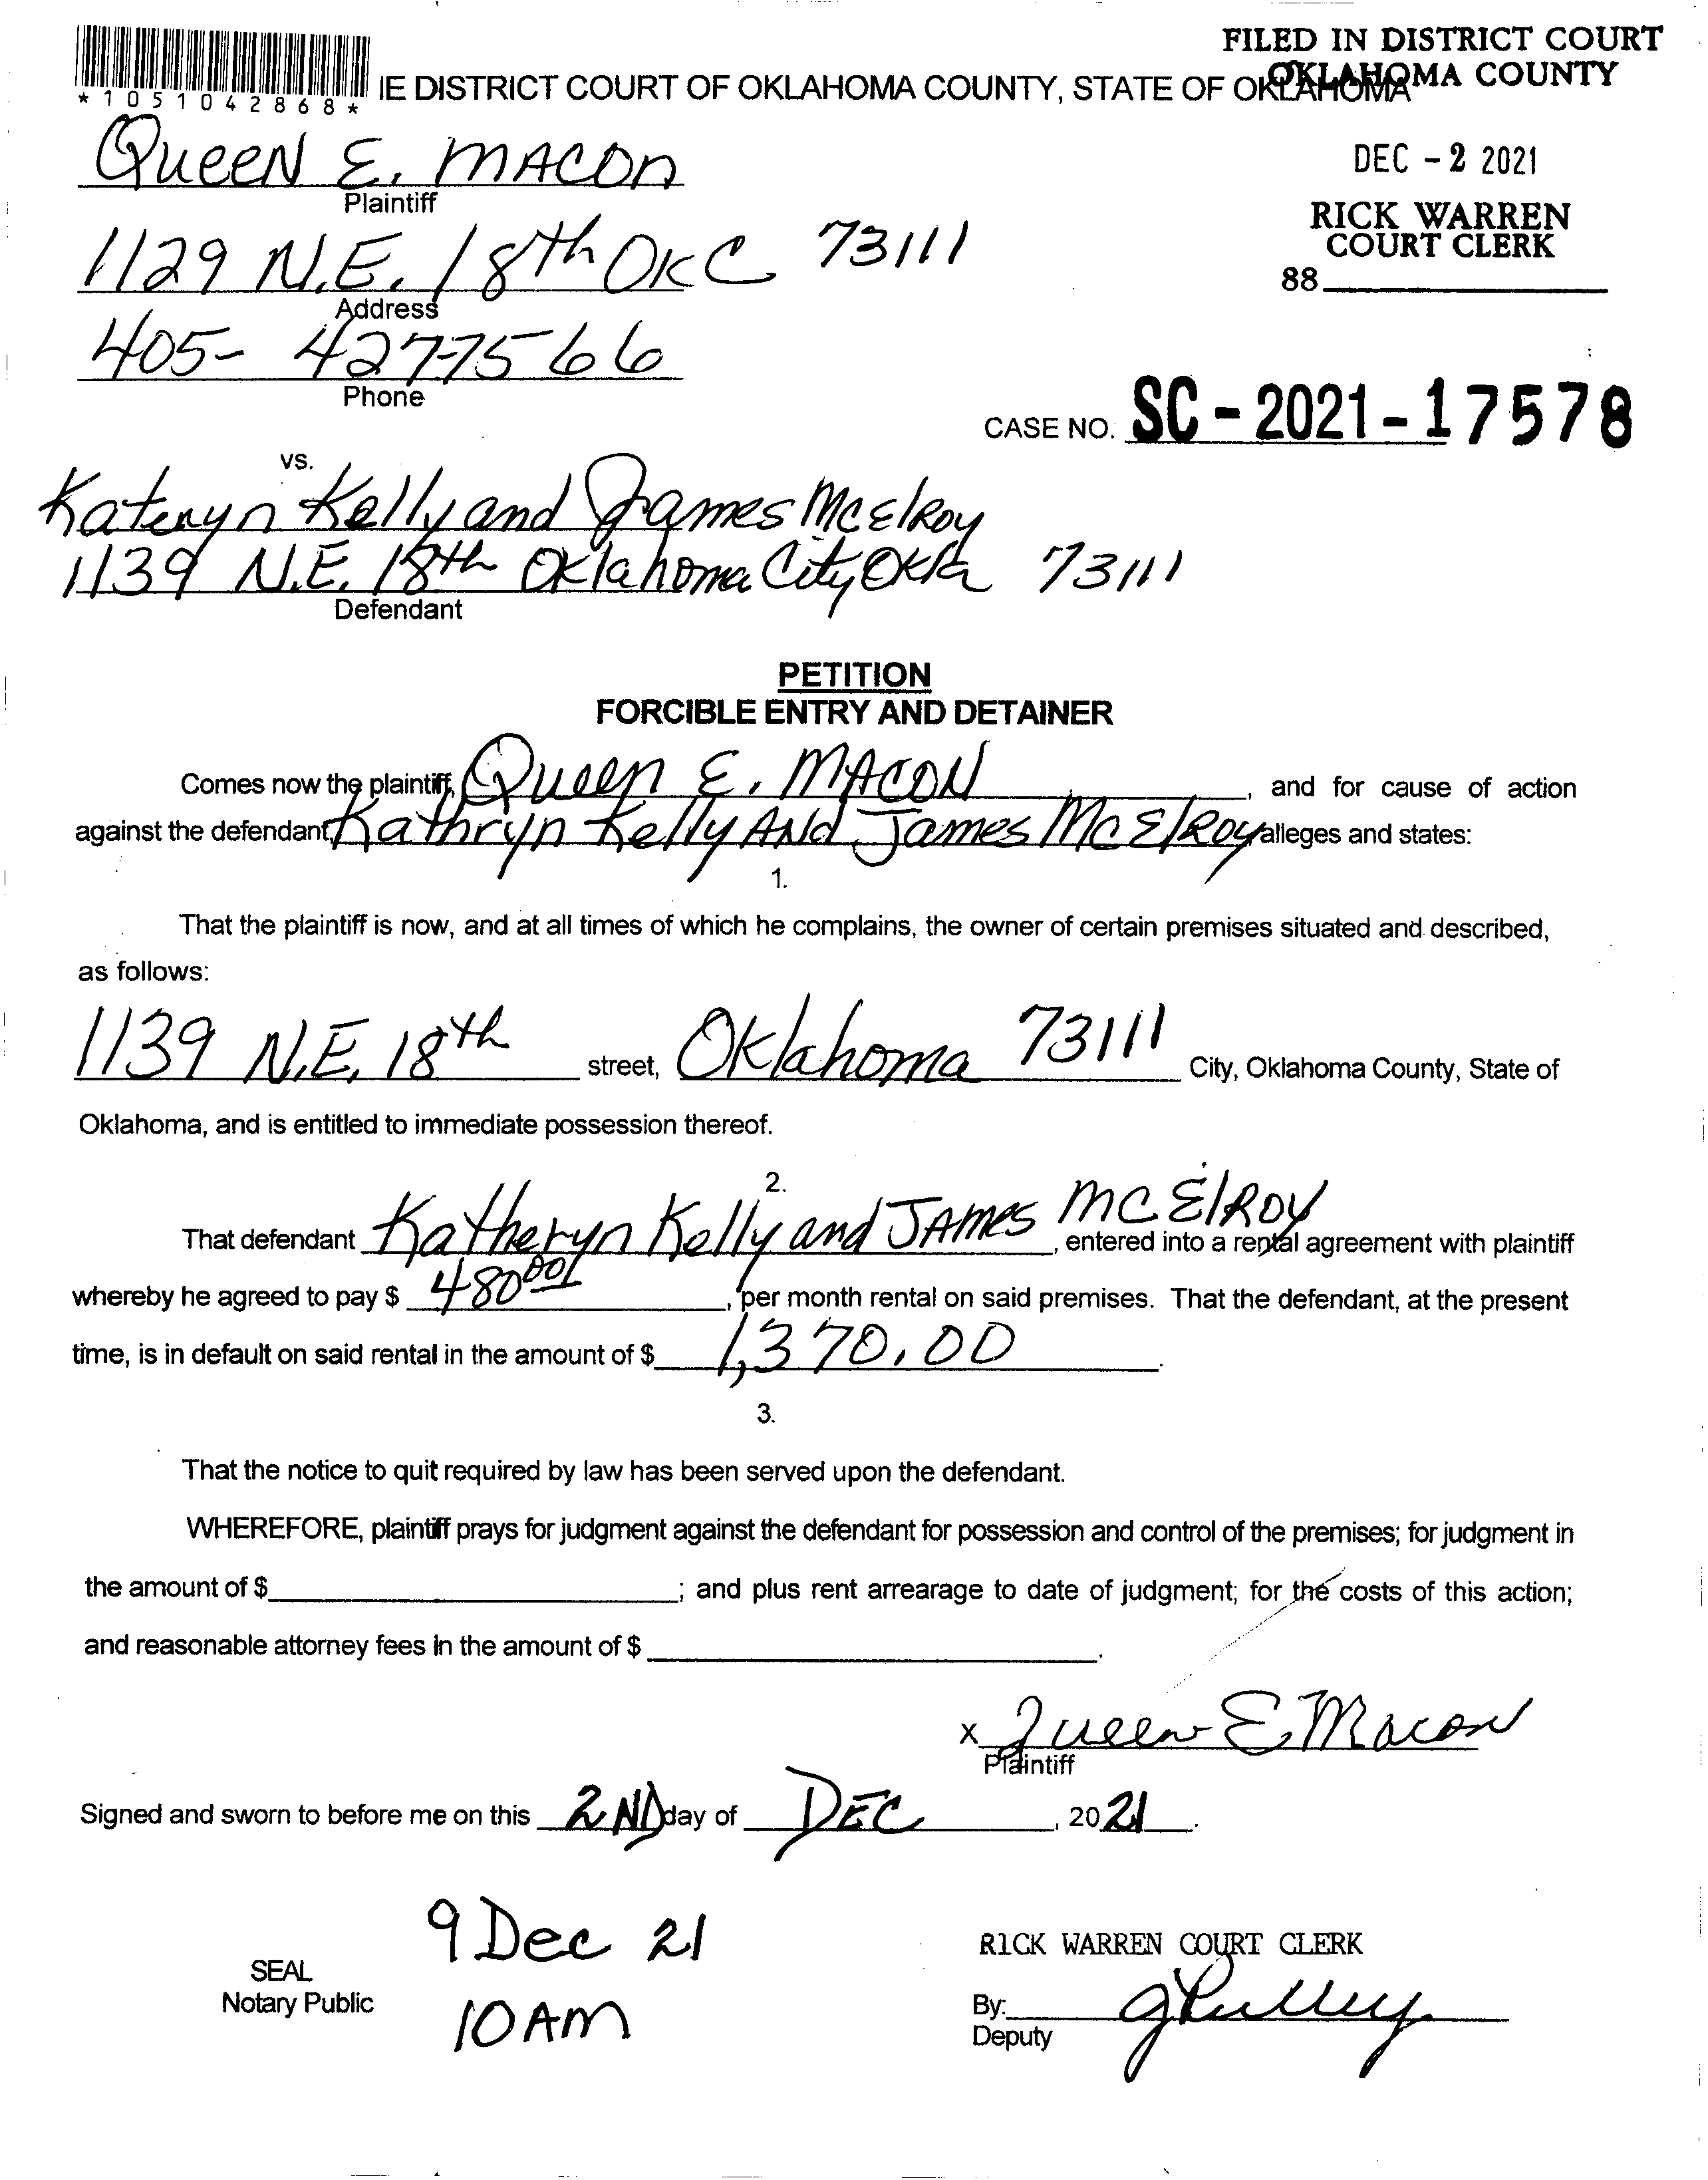 FILED IN DISTRICT COURT
OKLAHOMA COUNTY
*1051042868*
IE DISTRICT COURT OF OKLAHOMA COUNTY, STATE OF OKLAHOMA
DEC - 2 2021
RICK WARREN
COURT CLERK
88
Queen E. Macon
Plaintiff
1129 N.E. 18th OKC 73111
Address
405-427-7566
Phone
CASE NO. SC - 2021 - 17578
vs.
Kateryn Kelly and James McElroy
1139 N.E. 18th Oklahoma City Okla 73111
Defendant
PETITION
FORCIBLE ENTRY AND DETAINER
Comes now the plaintiff, Queen E. Macon, and for cause of action
against the defendant, Kathryn Kelly And James McElroy alleges and states:
1.
That the plaintiff is now, and at all times of which he complains, the owner of certain premises situated and described,
as follows:
1139 N.E. 18th street, Oklahoma 73111 City, Oklahoma County, State of
Oklahoma, and is entitled to immediate possession thereof.
2.
That defendant Katheryn Kelly and James McElroy, entered into a rental agreement with plaintiff
whereby he agreed to pay $ 480.00, per month rental on said premises. That the defendant, at the present
time, is in default on said rental in the amount of $ 1,370.00.
3.
That the notice to quit required by law has been served upon the defendant.
WHEREFORE, plaintiff prays for judgment against the defendant for possession and control of the premises; for judgment in
the amount of $ ; and plus rent arrearage to date of judgment; for the costs of this action;
and reasonable attorney fees in the amount of $ .
X Queen E. Macon
Plaintiff
Signed and sworn to before me on this 2ND day of DEC, 2021.
9 Dec 21
10 AM
SEAL
Notary Public
RICK WARREN COURT CLERK
By:
Deputy